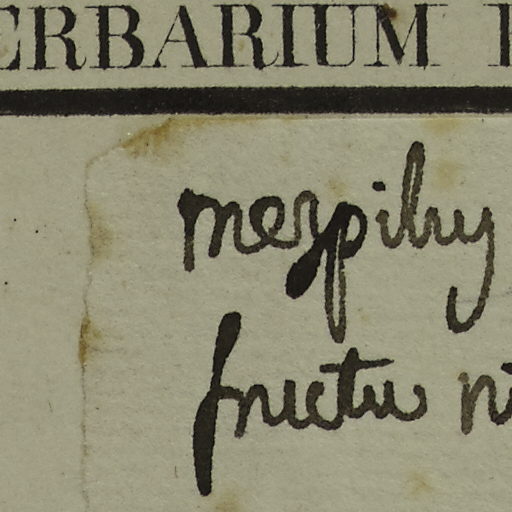 ERBARIUM
mezpiluy
fructu